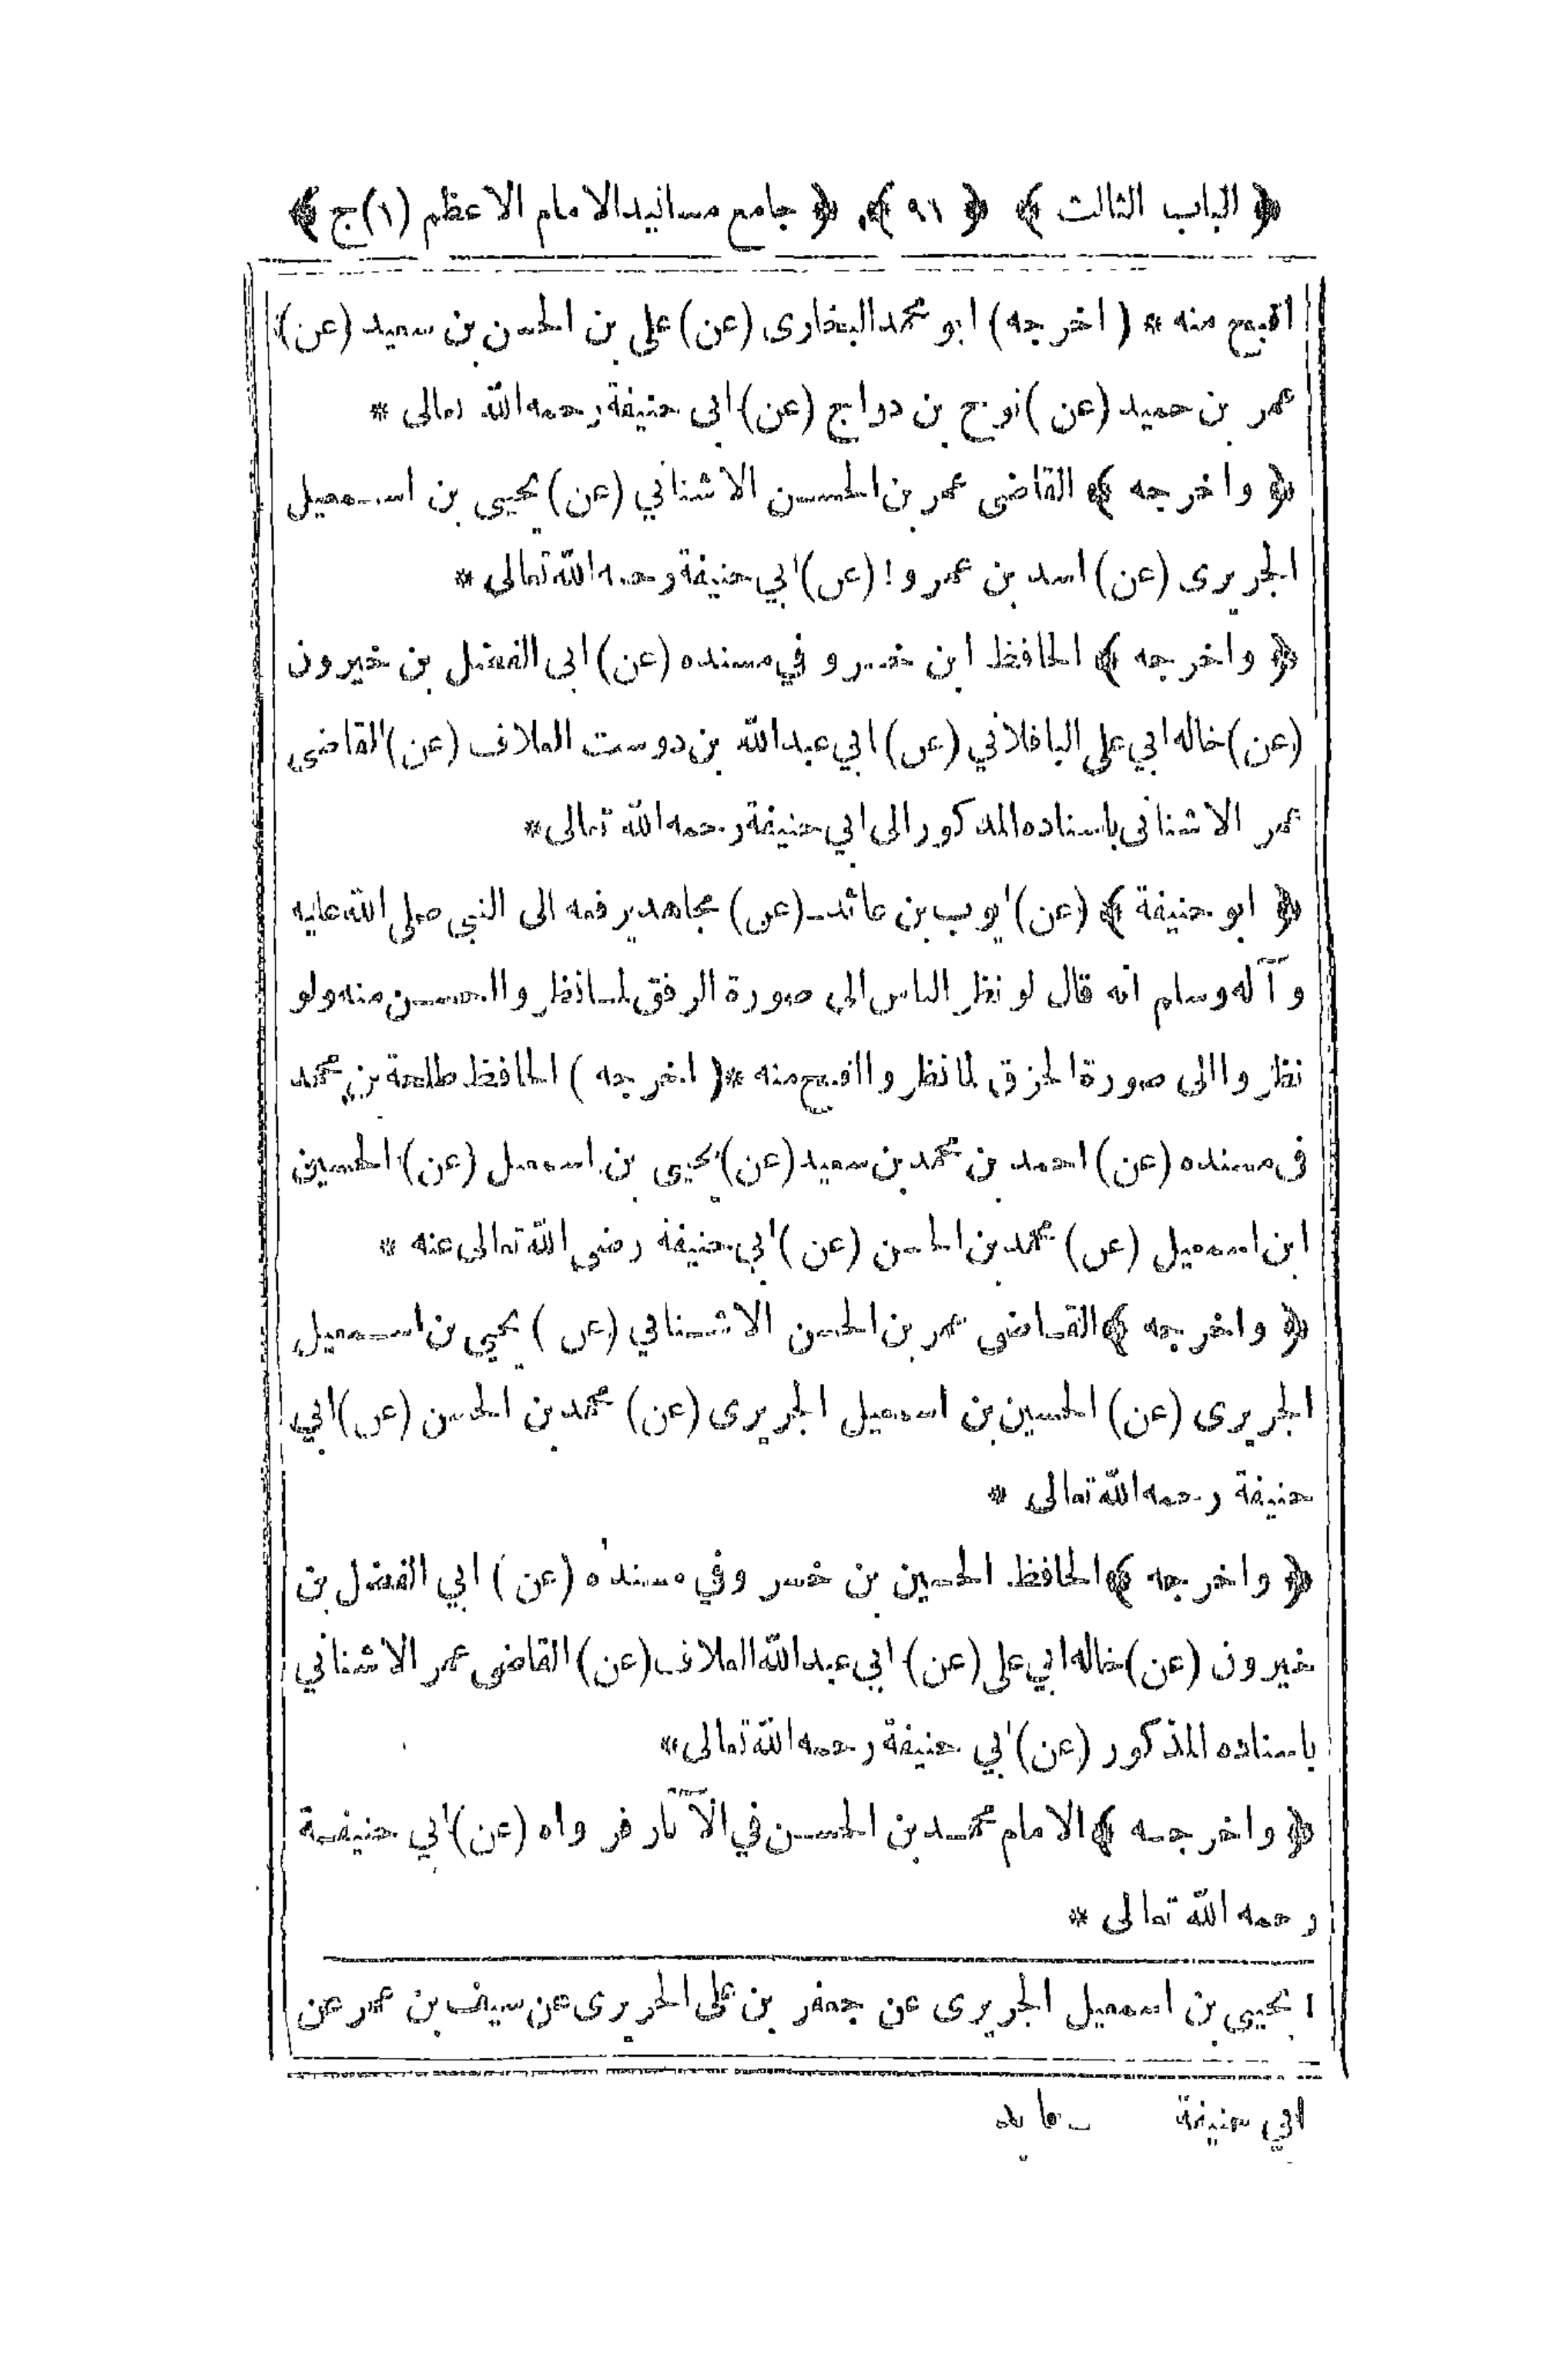 ﴿ الباب الثالث ﴾ ﴿ ٩١ ﴾ ﴿ جامع مسانيد الامام الاعظم (١) ج ﴾
اقبح منه * ( اخرجه ) ابو محمد البخارى (عن) على بن الحسن بن سعيد (عن)
عمر بن حميد (عن) نوح بن دراج (عن) ابى حنيفة رحمه الله تعالى *
﴿ واخرجه ﴾ القاضى عمر بن الحسن الاشناني (عن) يحيى بن اسمعيل
الجريرى (عن) اسد بن عمرو ! (عن) ابي حنيفة رحمه الله تعالى *
﴿ واخرجه ﴾ الحافظ ابن خسرو في مسنده (عن) ابى الفضل بن خيرون
(عن) خاله ابي على الباقلاني (عن) ابي عبد الله بن دوست العلاف (عن) القاضى
عمر الاشنانى باسناده المذكور الى ابي حنيفة رحمه الله تعالى *
﴿ ابو حنيفة ﴾ (عن) ايوب بن عائد (عن) مجاهد يرفعه الى النبي صلى الله عليه
وآله وسلم انه قال لو نظر الناس الى صورة الرفق لما نظروا احسن منه ولو
نظروا الى صورة الخرق لما نظروا اقبح منه * ( اخرجه ) الحافظ طلحة بن محمد
فى مسنده (عن) احمد بن محمد بن سعيد (عن) يحيى بن اسمعيل (عن) الحسين
ابن اسمعيل (عن) محمد بن الحسن (عن) ابي حنيفة رضى الله تعالى عنه *
﴿ واخرجه ﴾ القاضى عمر بن الحسن الاشناني (عن) يحيى بن اسمعيل
الجريرى (عن) الحسين بن اسمعيل الجريرى (عن) محمد بن الحسن (عن) ابي
حنيفة رحمه الله تعالى *
﴿ واخرجه ﴾ الحافظ الحسين بن خسرو في مسنده (عن) ابي الفضل بن
خيرون (عن) خاله ابي على (عن) ابي عبد الله العلاف (عن) القاضى عمر الاشناني
باسناده المذكور (عن) ابي حنيفة رحمه الله تعالى *
﴿ واخرجه ﴾ الامام محمد بن الحسن في الآثار فرواه (عن) ابي حنيفة
رحمه الله تعالى *
١ يحيى بن اسمعيل الجريرى عن جعفر بن على الجريرى عن سيف بن عمر عن
ابي حنيفة